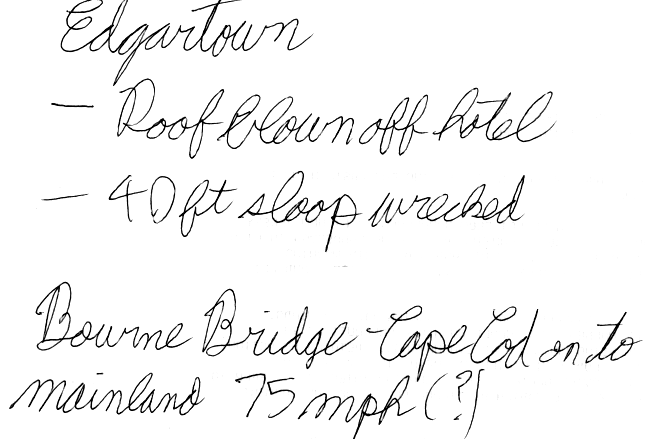 Edgartown
- Roof blown off hotel
- 40 ft sloop wrecked
Bourne Bridge - Cape Cod on to
mainland 75 mph (?)